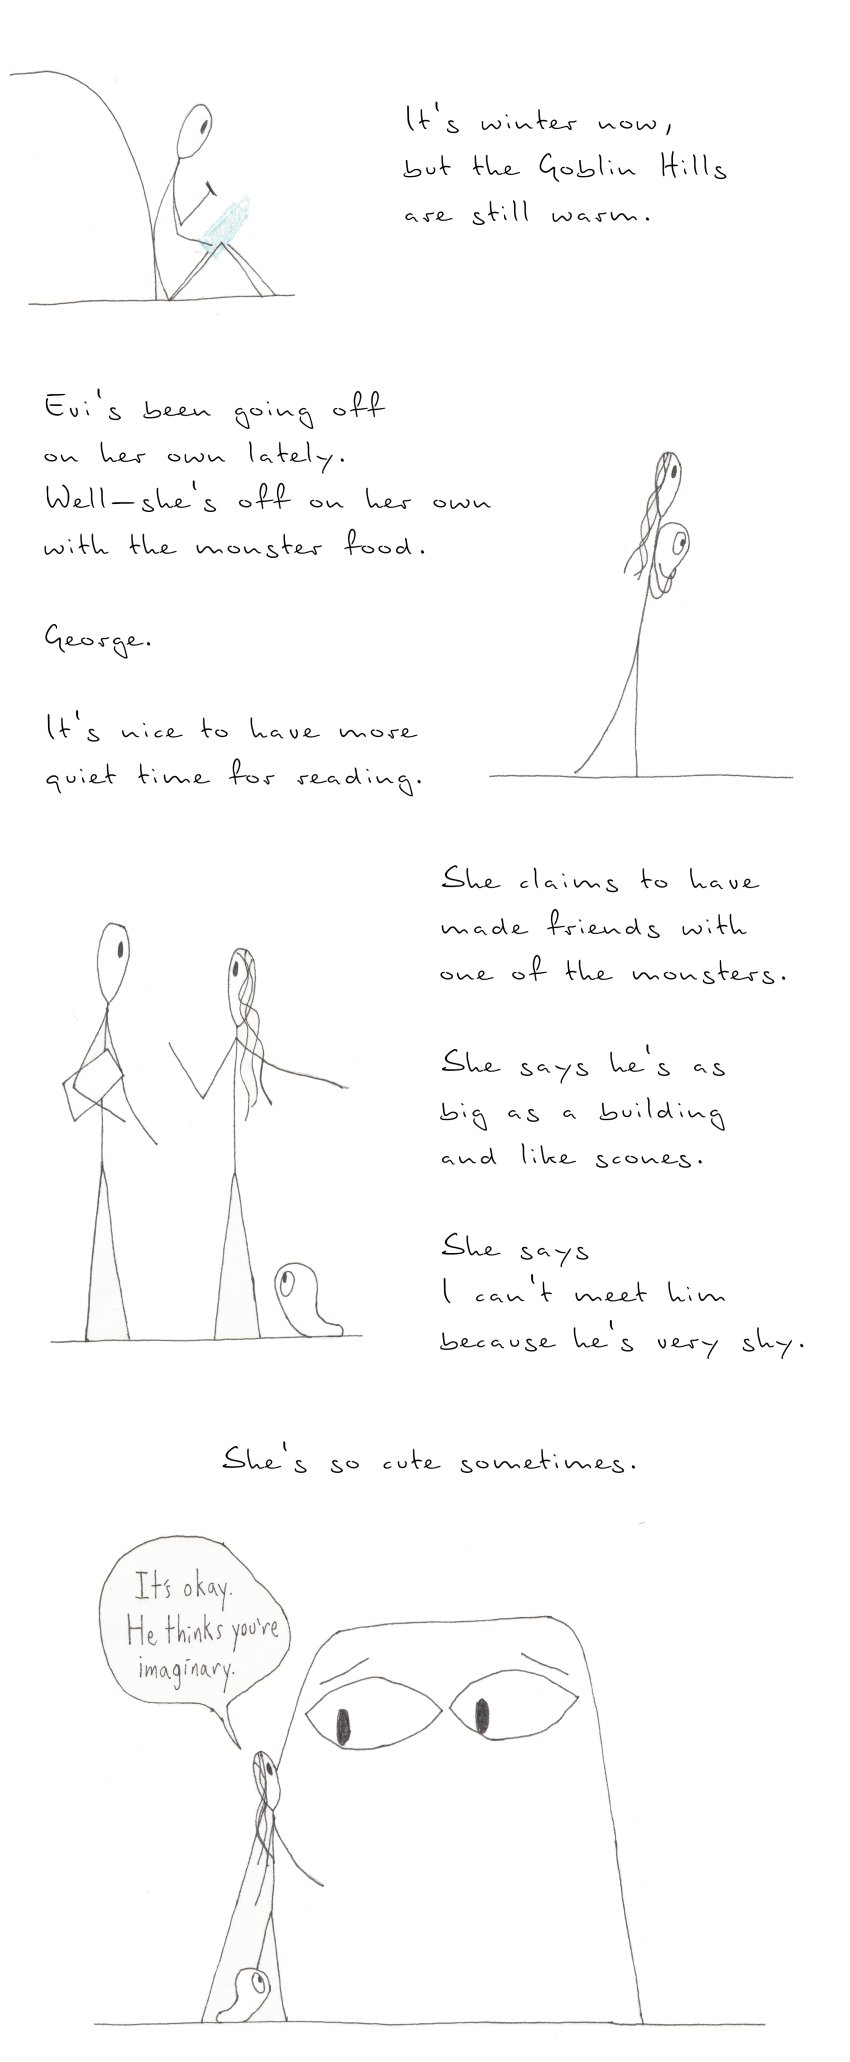 It's winter now,
but the Goblin Hills
are still warm.
Evi's been going off
on her own lately.
Well—she's off on her own
with the monster food.
George.
It's nice to have more
quiet time for reading.
She claims to have
made friends with
one of the monsters.
She says he's as
big as a building
and like scones.
She says
I can't meet him
because he's very shy.
She's so cute sometimes.
It's okay.
He thinks you're
imaginary.